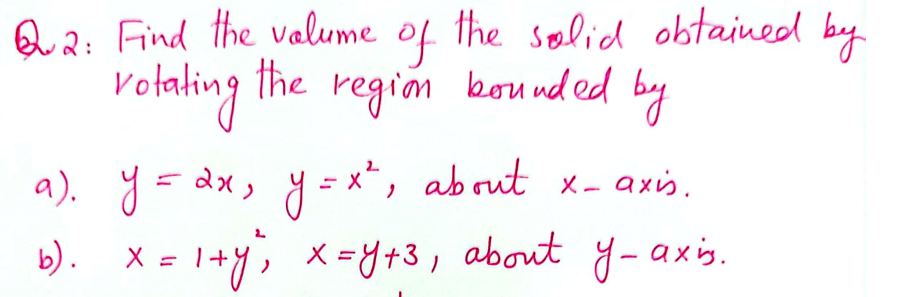 Q2: Find the volume of the solid obtained by
rotating the region bounded by
a). y = 2x, y = x², about x-axis.
b). x = 1+y², x = y+3, about y-axis.